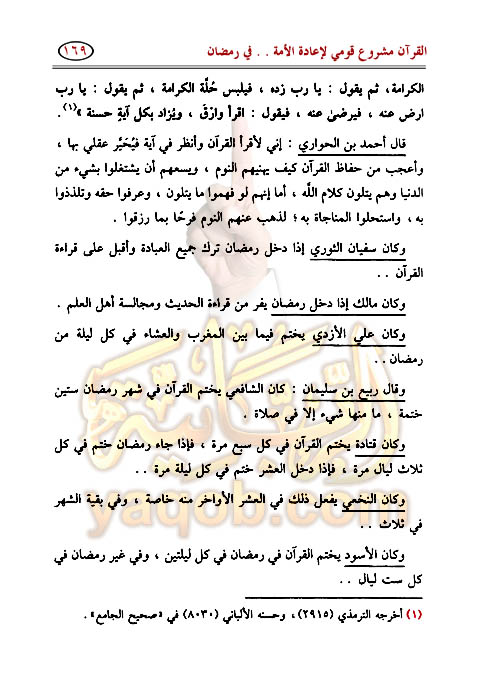 القرآن مشروع قومي لإعادة الأمة . . في رمضان ١٦٩
الكرامة، ثم يقول : يا رب زده ، فيلبس حُلَّة الكرامة ، ثم يقول : يا رب
ارض عنه ، فيرضىٰ عنه ، فيقول : اقرأ وارْقَ ، ويُزَاد بكل آيةٍ حسنة »(١).
قال أحمد بن الحواري : إني لأقرأ القرآن وأنظر في آية فيُحَيَّر عقلي بها ،
وأعجب من حفاظ القرآن كيف يهنيهم النوم ، ويسعهم أن يشتغلوا بشيء من
الدنيا وهم يتلون كلام اللَّه ، أما إنهم لو فهموا ما يتلون ، وعرفوا حقه وتلذذوا
به ، واستحلوا المناجاة به ؛ لذهب عنهم النوم فرحًا بما رزقوا .
وكان سفيان الثوري إذا دخل رمضان ترك جميع العبادة وأقبل على قراءة
القرآن . .
وكان مالك إذا دخل رمضان يفر من قراءة الحديث ومجالسة أهل العلم .
وكان علي الأزدي يختم فيما بين المغرب والعشاء في كل ليلة من
رمضان . .
وقال ربيع بن سليمان : كان الشافعي يختم القرآن في شهر رمضان ستين
ختمة ، ما منها شيء إلا في صلاة .
وكان قتادة يختم القرآن في كل سبع مرة ، فإذا جاء رمضان ختم في كل
ثلاث ليال مرة ، فإذا دخل العشر ختم في كل ليلة مرة . .
وكان النخعي يفعل ذلك في العشر الأواخر منه خاصة ، وفي بقية الشهر
في ثلاث . .
وكان الأسود يختم القرآن في رمضان في كل ليلتين ، وفي غير رمضان في
كل ست ليال . .
(١) أخرجه الترمذي (٢٩١٥) ، وحسنه الألباني (٨٠٣٠) في «صحيح الجامع» .
yaqob.com